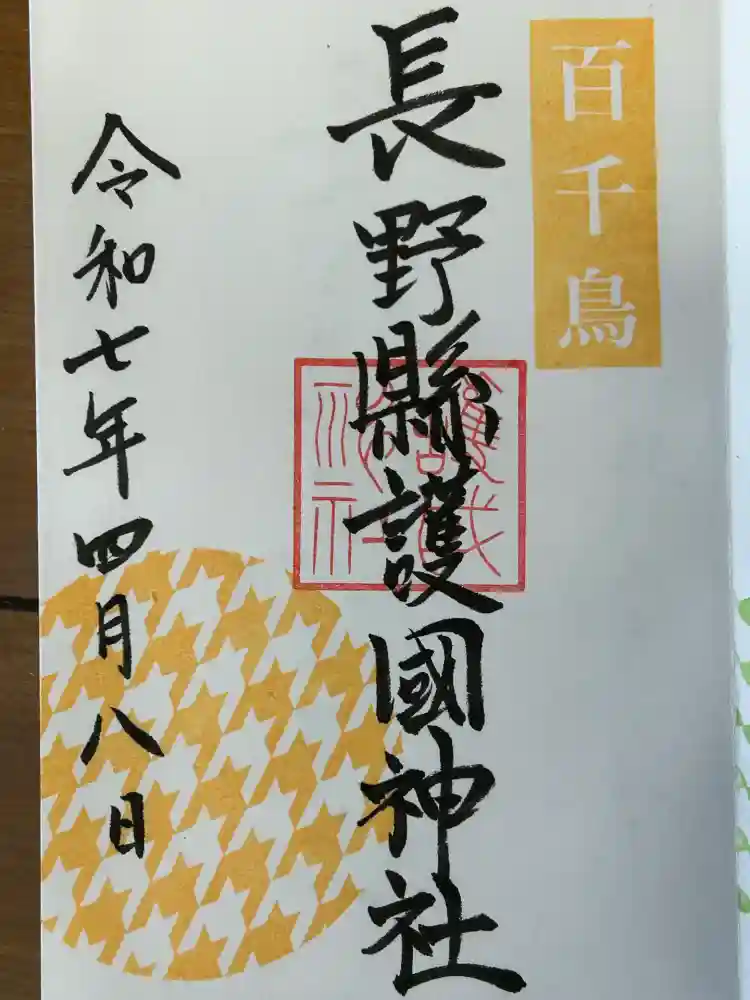 百千鳥
長野縣護國神社
令和七年四月八日